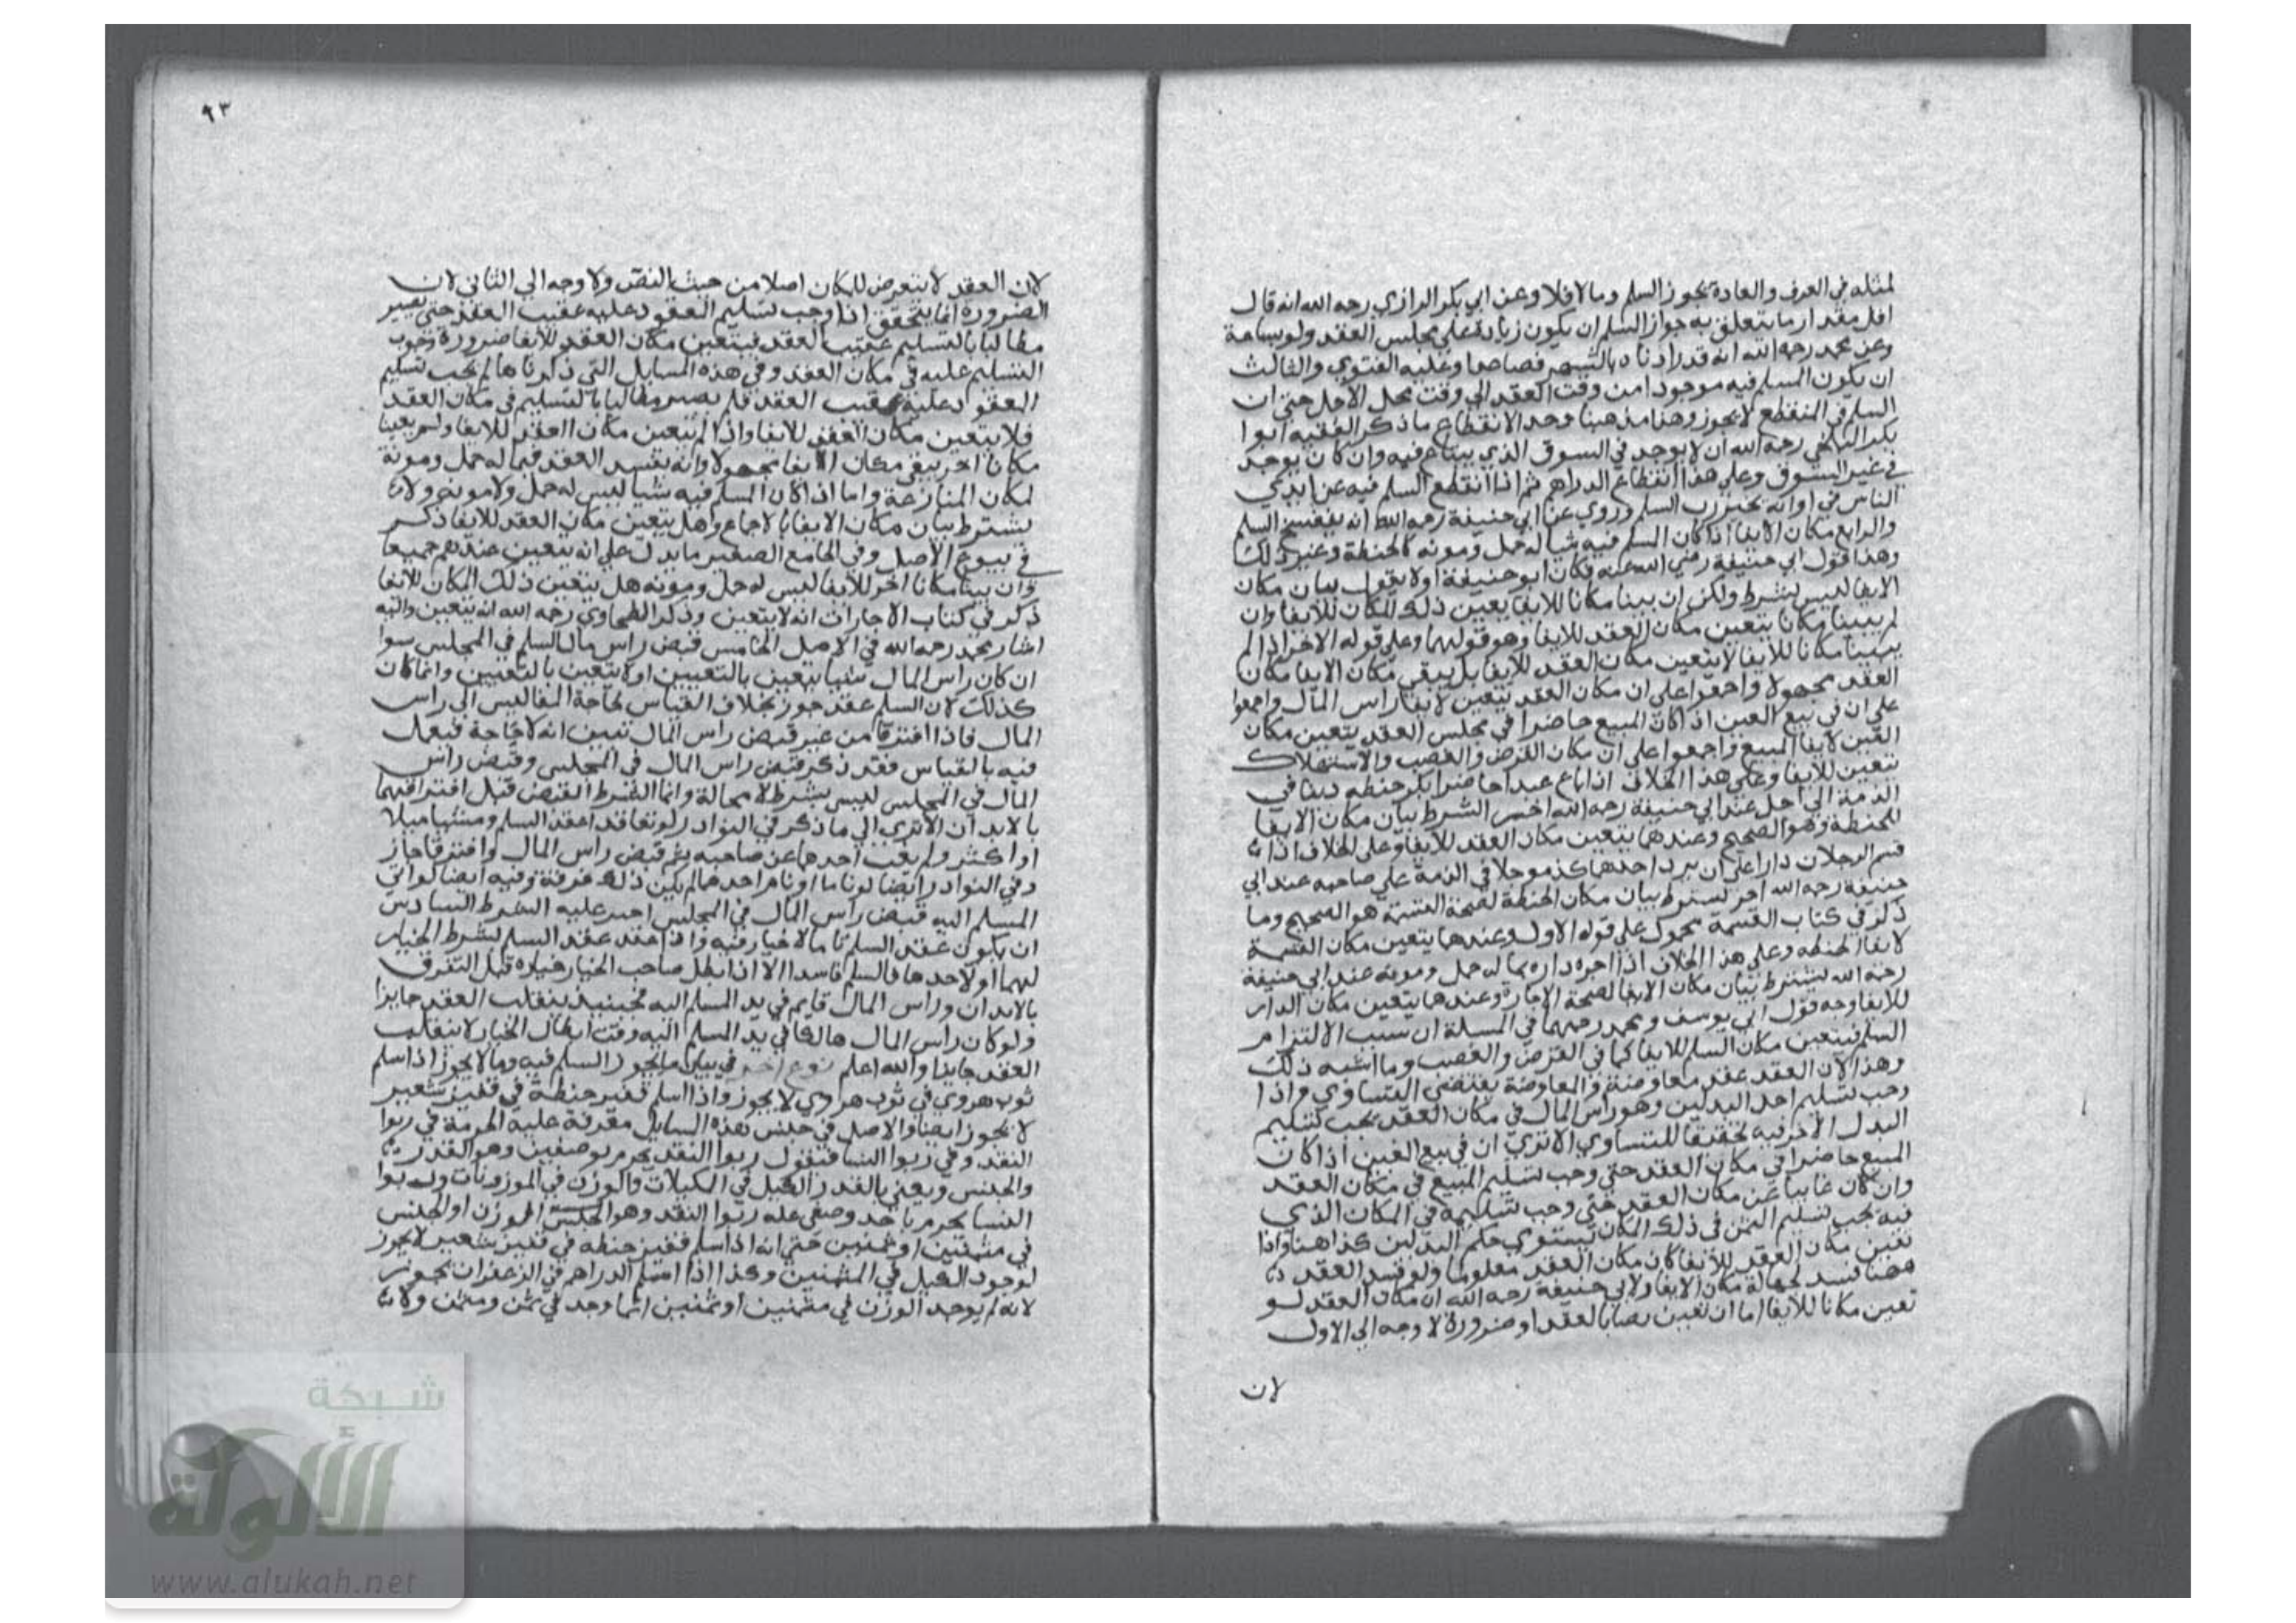 لمثله في العرف والعادة يجوز السلم وما لا فلا وعن ابي بكر الرازي رحمه الله انه قال
اقل مقدار ما يتعلق به جواز السلم ان يكون زيادة على مجلس العقد ولو بساعة
وعن محمد رحمه الله انه قدر ادناه بالشهر فصاعدا وعليه الفتوي والثالث
ان يكون المسلم فيه موجودا من وقت العقد الى وقت محل الاجل حتى ان
السلم في المنقطع لا يجوز وهذا مذهبنا وحد الانقطاع ما ذكر الفقيه ابوا
بكر البلخي رحمه الله ان لا يوجد في السوق الذي يباع فيه وان كان يوجد
في غير السوق وعلى هذا انقطاع الدراهم ثم اذا انقطع السلم فيه عن ايدي
الناس في اوانه تخير رب السلم وروي عن ابي حنيفة رحمه الله انه ينفسخ السلم
والرابع مكان الايفا اذا كان السلم فيه شيا له حمل ومونه كالحنطة وغير ذلك
وهذا قول ابي حنيفة رضي الله عنه فكان ابو حنيفة اولا يقول بيان مكان
الايفا ليس بشرط ولكن ان بينا مكانا للايفا يعين ذلك المكان للايفا وان
لم يبينا مكانا يتعين مكان العقد للايفا وهو قولهما وعلى قوله الاخر اذا لم
يبينا مكانا للايفا لا يتعين مكان العقد للايفا بل يبقى مكان الايفا مكان
العقد مجهولا واجمعوا على ان مكان العقد يتعين لايفا راس المال واجمعوا
على ان في بيع العين اذا كان المبيع حاضرا في مجلس العقد يتعين مكان
العين لايفا المبيع واجمعوا على ان مكان القرض والغصب والاستهلاك
يتعين للايفا وعلى هذا الخلاف اذا باع عبدا حاضرا بكر حنطه دينا في
الذمة الى اجل عند ابي حنيفة رحمه الله اخر الشرط بيان مكان الايفا
للحنطة وهو الصحيح وعندهما يتعين مكان العقد للايفا وعلى الخلاف اذا
قسم الرجلان دارا على ان يرد احدهما كذا موجلا في الذمة على صاحبه عند ابي
حنيفة رحمه الله اخر يشترط بيان مكان الحنطة لصحة القسمة هو الصحيح وما
ذكر في كتاب القسمة محمول على قوله الاول وعندهما يتعين مكان القسمة
لايفا الحنطه وعلى هذا الخلاف اذا اجره داره بما له حمل ومونة عند ابي حنيفة
رحمه الله يشترط بيان مكان الايفا لصحة الاجارة وعندهما يتعين مكان الدار
للايفا وجه قول ابي يوسف ومحمد رحمهما في المسلة ان سبب الالتزام
السلم فيتعين مكان السلم للايفا كما في القرض والغصب وما اشبه ذلك
وهذا لان العقد عقد معاوضة والمعاوضة يقتضي التساوي واذا
وجب تسليم احد البدلين وهو راس المال في مكان العقد يجب تسليم
البدل الاخر فيه تحقيقا للتساوي الا تري ان في بيع العين اذا كان
المبيع حاضرا في مكان العقد حتى وجب تسليم المبيع في مكان العقد
وان كان غايبا عن مكان العقد حتى وجب تسليمه في المكان الذي
فيه يجب تسليم الثمن في ذلك المكان ليستوي حكم البدلين كذا هنا واذا
تعين مكان العقد للايفا كان مكان العقد معلوما ولو فسد العقد
ههنا لفسد لجهالة مكان الايفا ولابي حنيفة رحمه الله ان مكان العقد لو
تعين مكانا للايفا اما ان تعين نصا بالعقد او ضرورة لا وجه الى الاول
لان
٩٣
لان العقد لا يتعرض للمكان اصلا من حيث النص ولا وجه الي الثاني لان
الضرورة انما يتحقق اذا وجب تسليم المعقود عليه عقيب العقد حتى يصير
مطالبا بالتسليم عقيب العقد فيتعين مكان العقد للايفا ضرورة وجوب
التسليم عليه في مكان العقد وفي هذه المسايل التي ذكرناها لم يجب تسليم
المعقود عليه عقيب العقد فلم يصر مطالبا بالتسليم في مكان العقد
فلا يتعين مكان العقد للايفا واذا لم يتعين مكان العقد للايفا ولم يعينا
مكانا اخر يبقى مكان الايفا مجهولا وانه يفسد العقد فيما له حمل ومونة
لمكان المنازعة واما اذا كان المسلم فيه شيا ليس له حمل ولا مونه
يشترط بيان مكان الايفا بالاجماع وهل يتعين مكان العقد للايفا ذكر
في بيوع الاصل وفي الجامع الصغير ما يدل على انه يتعين عندهم جميعا
وان بينا مكانا اخر للايفا ليس له حمل ومونه هل يتعين ذلك المكان للايفا
ذكر في كتاب الاجارات انه لا يتعين وذكر الطحاوي رحمه الله انه يتعين واليه
اشار محمد رحمه الله في الاصل الخامس قبض راس مال السلم في المجلس سوا
ان كان راس المال شيا يتعين بالتعيين او لا يتعين بالتعيين وانما كان
كذلك لان السلم عقد جوز بخلاف القياس لحاجة المفاليس الى راس
المال فاذا افترقا من غير قبض راس المال تبين انه لا حاجة فيعمل
فيه بالقياس فقد ذكر قبض راس المال في المجلس وقبض راس
المال في المجلس ليس بشرط لا محالة وانما الشرط القبض قبل افتراقهما
بالابدان الا تري الى ما ذكر في النوادر لو تعاقدا عقد السلم ومشيا ميلا
او اكثر ولم يغب احدهما عن صاحبه ثم قبض راس المال وافترقا جاز
وفي النوادر ايضا لو ناما او نام احدهما لم يكن ذلك فرقة وفيه ايضا لو ابى
المسلم اليه قبض راس المال في المجلس اجبر عليه الشرط السادس
ان يكون عقد السلم تاما لا خيار فيه واذا عقد عقد السلم بشرط الخيار
لهما او لاحدهما فالسلم فاسد الا اذا ابطل صاحب الخيار خياره قبل التفرق
بالابدان وراس المال قايم في يد المسلم اليه فحينيذ ينقلب العقد جايزا
ولو كان راس المال هالكا في يد المسلم اليه وقت ابطال الخيار لا ينقلب
العقد جايزا والله اعلم نوع اخر في بيان ما يجوز السلم فيه وما لا يجوز اذا سلم
ثوب هروي في ثوب هروي لا يجوز واذا اسلم قفيز حنطة في قفيز شعير
لا يجوز ايضا والاصل في جنس هذه المسايل معرفة علية الحرمة في ربوا
النقد وفي ربوا النسا فنقول ربوا النقد يحرم بوصفين وهو القدر
والجنس ويعني بالقدر الكيل في المكيلات والوزن في الموزونات وربوا
النسا يحرم باحد وصفي علة ربوا النقد وهو الوزن او الجنس
في مثمنين او ثمنين حتى انه اذا سلم قفيز حنطه في قفيز شعير لا يجوز
لوجود الكيل في المثمنين وكذا اذا اسلم الدراهم في الزعفران يجوز
لانه لم يوجد الوزن في مثمنين او ثمنين انما وجد في ثمن ومثمن ولان
شبكة
الألوكة
www.alukah.net